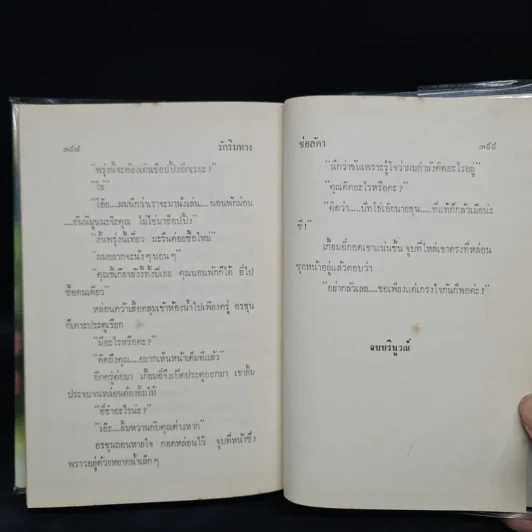 ๓๙๘ รักริมทาง
"พรุ่งนี้จะต้องเดินช็อปปิ้งอีกเรอะ?"
"ใช่"
"โอ๊ย....ผมนึกว่าเราจะมานั่งเล่น.... นอนพักผ่อน
"งั้นพรุ่งนี้เที่ยว มะรืนค่อยซื้อใหม่"
"ผมอยากจะนั่งๆ นอนๆ"
ซื้อคนเดียว"
หล่อนคว้าเสื้อคลุมเข้าห้องน้ำไปเพียงครู่ อรชุน
ก็เคาะประตูเรียก
"มีอะไรหรือคะ?"
"คิดถึงคุณ....อยากเห็นหน้าเต็มทีแล้ว"
อีกครู่ต่อมา เกื้อมีจึงเปิดประตูออกมา เขายิ้ม
ประจบจนหล่อนต้องยิ้มให้
"อีช้าอะไรน่ะ?"
"เอ๊ะ....ยิ้มหวานกับคุณต่างหาก"
อรชุนถอนหายใจ กอดหล่อนไว้ จูบที่หน้าซึ่ง
พราวอยู่ด้วยหยาดน้ำเล็กๆ
ช่อลัดา ๓๙๙
"นึกว่าขันเพราะรู้ใจว่าผมกำลังคิดอะไรอยู่"
"คุณคิดอะไรหรือคะ?"
ซี!"
เกื้อมีกอดเขาแน่นขึ้น จูบที่ไหล่เขาตรงที่หล่อน
ซุกหน้าอยู่แล้วตอบว่า
"อย่ากลัวเลย....ขอเพียงแค่เกรงใจกันก็พอค่ะ!"
จบบริบูรณ์